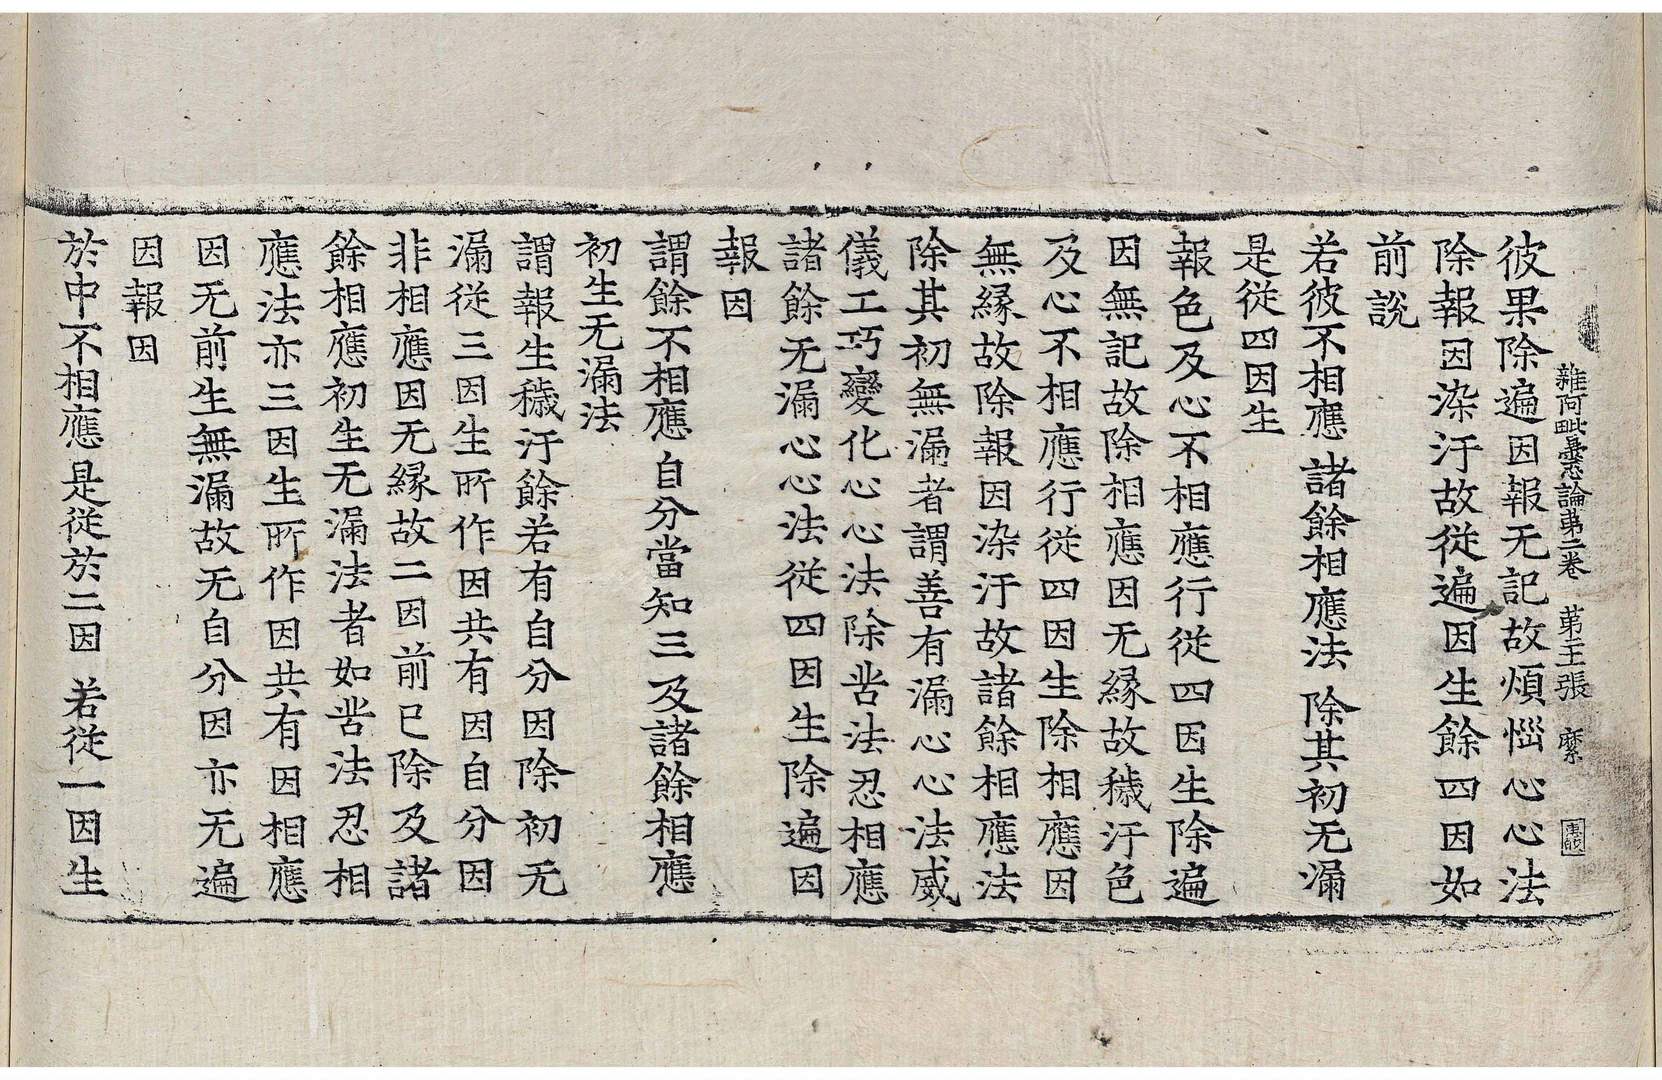 雜阿毗曇心論第二卷 第五張 縻
彼果除遍因報无記故煩惱心心法
除報因染汙故從遍因生餘四因如
前說
若彼不相應 諸餘相應法 除其初无漏
是從四因生
報色及心不相應行從四因生除遍
因無記故除相應因无緣故穢汙色
及心不相應行從四因生除相應因
無緣故除報因染汙故諸餘相應法
除其初無漏者謂善有漏心心法威
儀工巧變化心心法除苦法忍相應
諸餘无漏心心法從四因生除遍因
報因
謂餘不相應 自分當知三 及諸餘相應
初生无漏法
謂報生穢汙餘若有自分因除初无
漏從三因生所作因共有因自分因
非相應因无緣故二因前已除及諸
餘相應初生无漏法者如苦法忍相
應法亦三因生所作因共有因相應
因无前生無漏故无自分因亦无遍
因報因
於中不相應 是從於二因 若從一因生